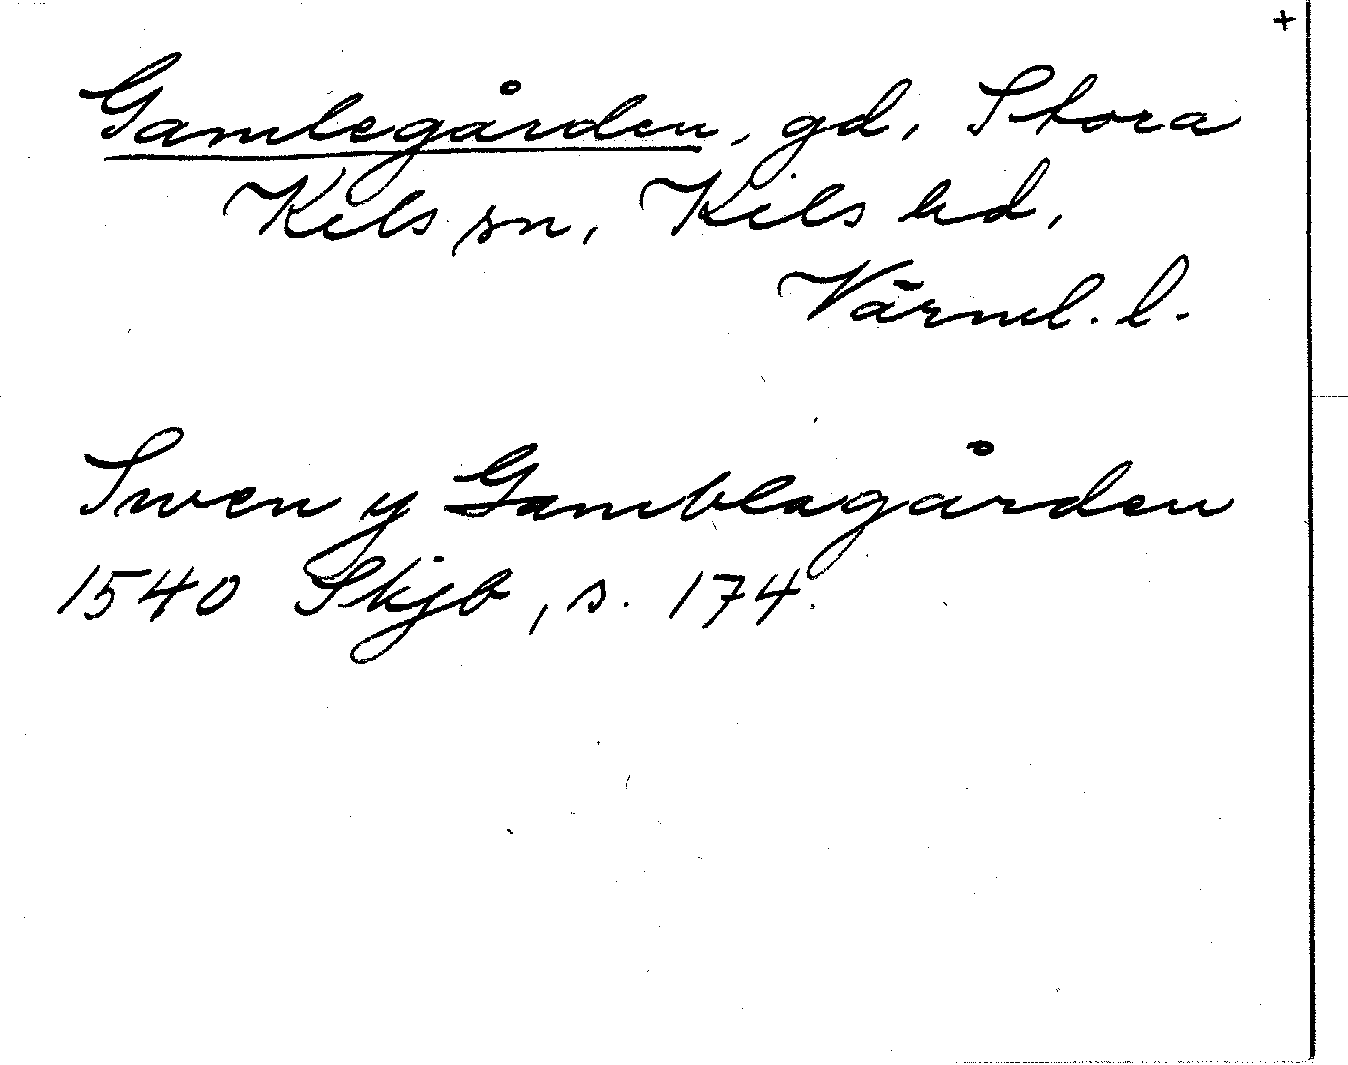 +
Gamlegården, gd, Stora
Kils sn, Kils hd,
Värml. l.
Swen y Gamblagården
1540 Skjb, s. 174.